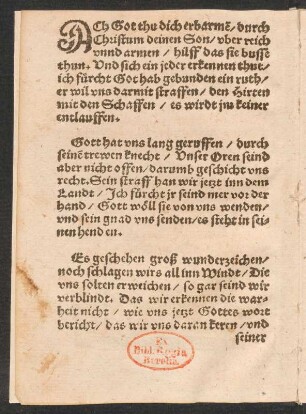 ACh Got thu dich erbarmē / durch
Christum deinen Son / vber reich
vnnd armen / hilff das sie busse
thun. Vnd sich ein jeder erkennen thut /
ich fürcht Got hab gebunden ein ruth /
er wil vns darmit straffen / den Hirten
mit den Schaffen / es wirdt jm keiner
entlauffen.
Gott hat vns lang geruffen / durch
seinē trewen knecht / Vnser Oren seind
aber nicht offen / darumb geschicht vns
recht. Sein straff han wir jetzt inn dem
Landt / Ich fürcht jr seind mer vor der
hand / Gott wöll sie von vns wenden /
vnd sein gnad vns senden / es steht in sei-
nen henden.
Es geschehen groß wunderzeichen /
noch schlagen wirs all inn Windt / Die
vns solten erweichen / so gar seind wir
verblindt. Das wir erkennen die war-
heit nicht / wie vns jetzt Gottes wort
bericht / das wir vns daran keren / vnd
seiner
Ex
Bibl. Regia
Berolin.